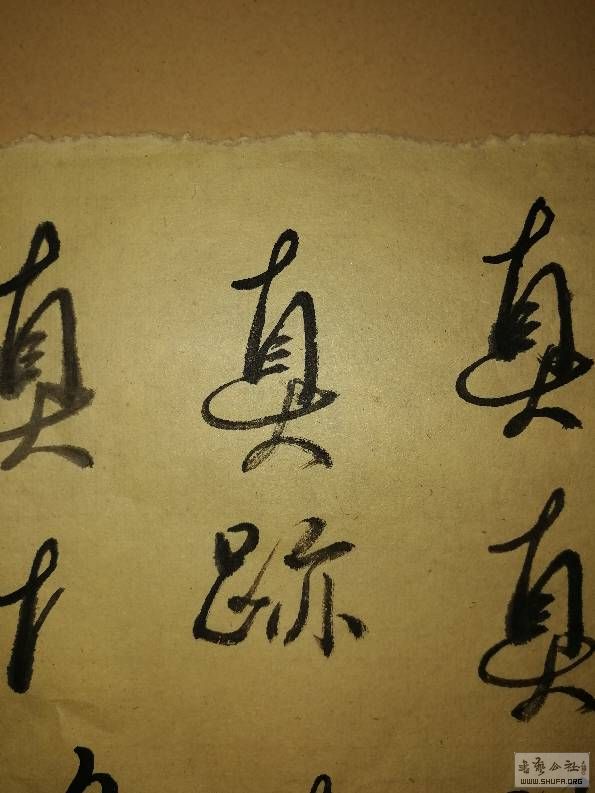 真真
真跡
真
书艺公社
WWW.SHUFA.ORG